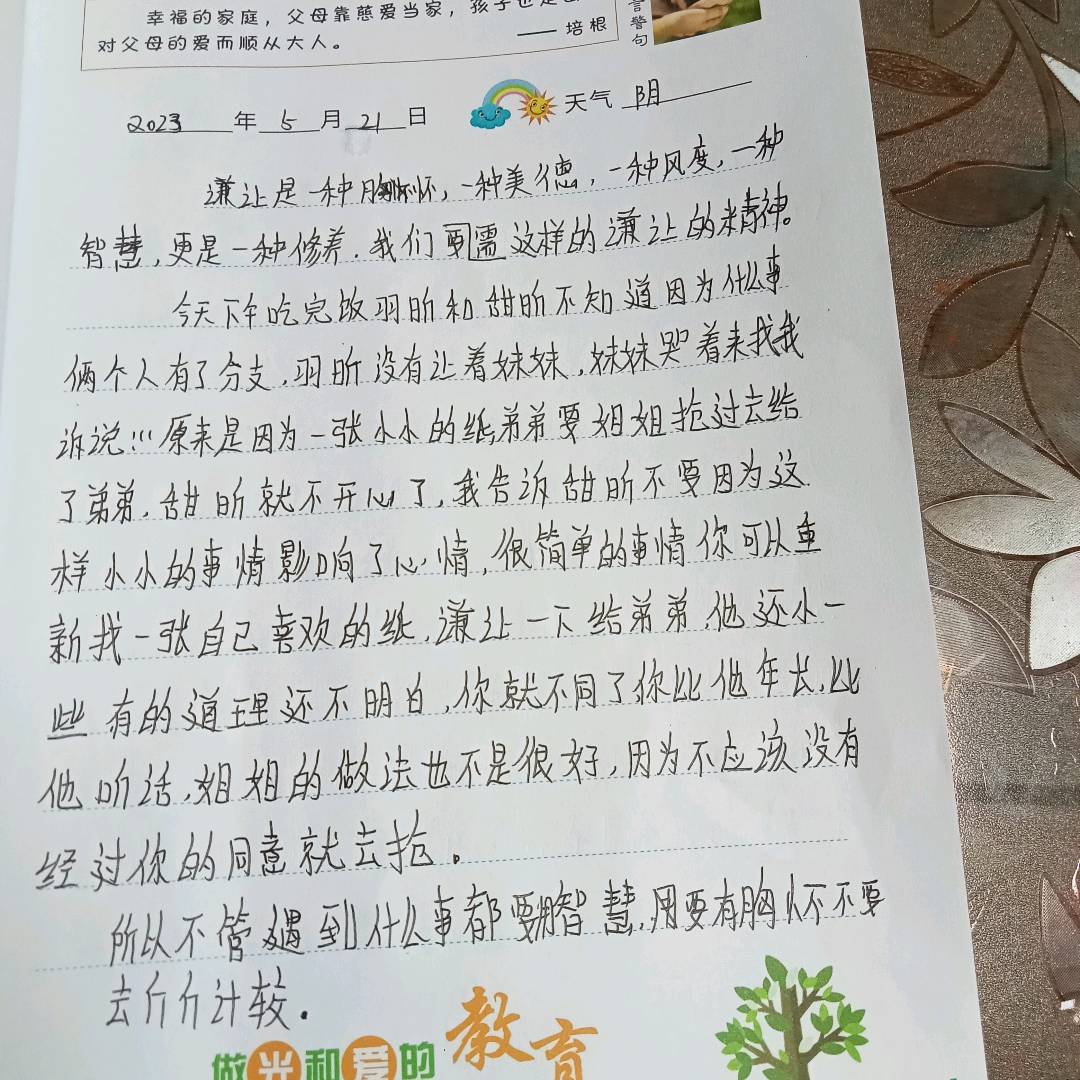 幸福的家庭，父母靠慈爱当家，孩子也是
对父母的爱而顺从大人。
—— 培根
言警句
2023 年 5 月 21 日
天气 阴
谦让是一种胸怀，一种美德，一种风度，一种
智慧，更是一种修养．我们要需这样的谦让的精神。
今天下午吃完饭羽昕和甜昕不知道因为什么事
俩个人有了分支，羽昕没有让着妹妹，妹妹哭着来找我
诉说！！！原来是因为一张小小的纸弟弟要姐姐抢过去给
了弟弟，甜昕就不开心了，我告诉甜昕不要因为这
样小小的事情影响了心情，很简单的事情你可以重
新找一张自己喜欢的纸，谦让一下给弟弟，他还小一
些有的道理还不明白，你就不同了你比他年长，比
他听话，姐姐的做法也不是很好，因为不应该没有
经过你的同意就去抢。
所以不管遇到什么事都要用智慧，用要有胸怀不要
去斤斤计较．
做光和爱的教育